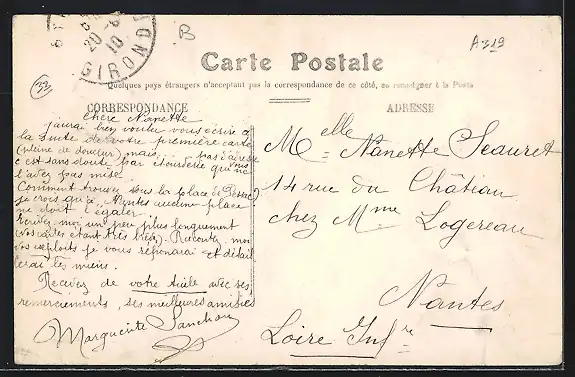 20-8
10
GIRONDE
B
A319
33
Carte Postale
Quelques pays étrangers n'acceptant pas la correspondance de ce côté, se renseigner à la Poste
CORRESPONDANCE
ADRESSE
Chère Nanette
j'aurai bien voulu vous écrire à
la suite de votre première carte
(pleine de douleur) mais.... pas d'adresse
c'est sans doute par étourderie que vous ne
l'avez pas mise.
Comment trouvez vous la place de
je crois qu'à Nantes aucune place
ne doit l'égaler.
Ecrivez moi un peu plus longuement
(vos cartes étant très bien). Racontez moi
vos exploits je vous répondrai et détail
lerai les miens.
Recevez de votre avec ses
remerciements, ses meilleures amitiés
Marguerite Sanchou
Melle Nanette Seauret
14 rue du Château
chez Mme Logereau
Nantes
Loire Infre